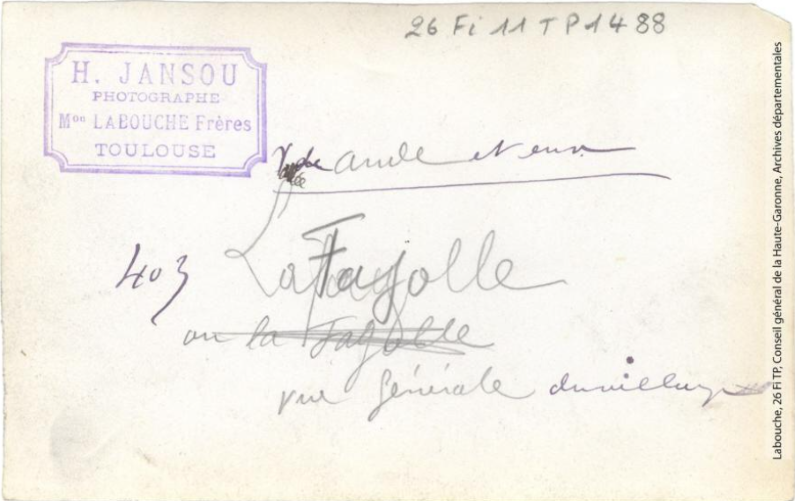 26 Fi 11 TP 1488
H. JANSOU
PHOTOGRAPHE
Mon LABOUCHE Frères
TOULOUSE
aude et
403 La Fajolle
ou la Fajolle
vue générale du village
Labouche, 26 Fi TP, Conseil général de la Haute-Garonne, Archives départementales